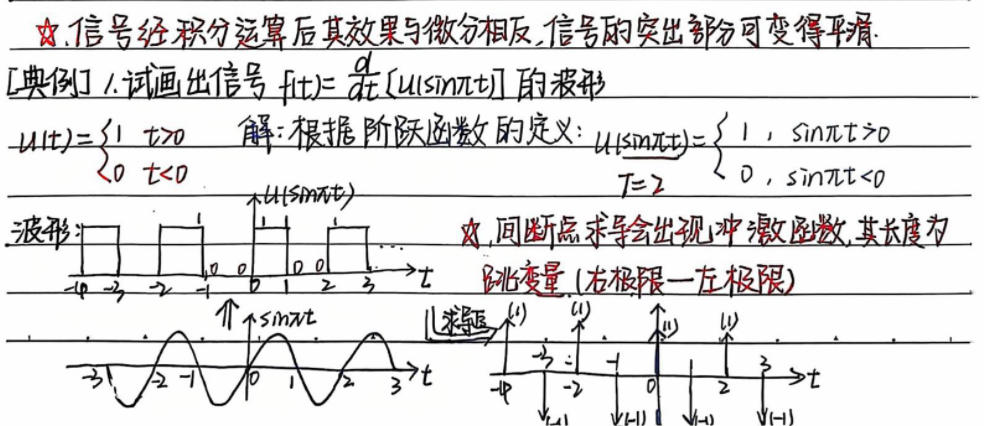 ☆.信号经积分运算后其效果与微分相反,信号的突出部分可变得平滑.
[典例] 1.试画出信号 f(t)= d/dt [u(sinπt)] 的波形
u(t)={1 t>0
0 t<0
解:根据阶跃函数的定义: u(sinπt)={1, sinπt>0
0, sinπt<0
T=2
波形:
u(sinπt)
1 1 1
0 0 0 0
-4 -3 -2 -1 0 1 2 3 ... t
☆.间断点求导会出现冲激函数,其长度为
跳变量(右极限-左极限)
⇑ sinπt
-3 -2 -1 0 1 2 3 t
求导
(1) (1) (1) (1)
-4 -3 -2 -1 0 2 3 t
(-1) (-1) (-1) (-1)